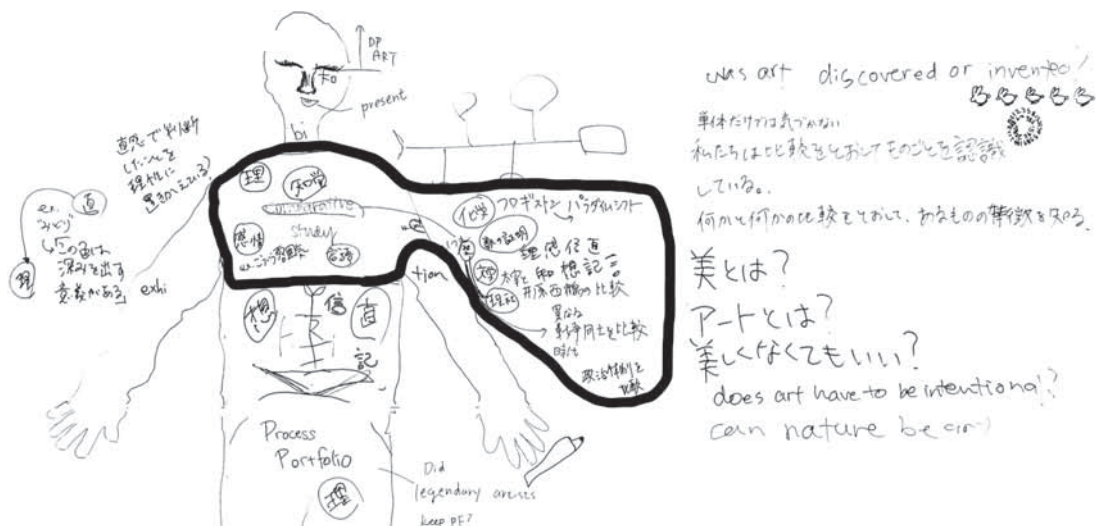 DP
ART
知
present
bi
直感で判断
したことを
理性に
置きかえている？
直
ex.
↳この色は
深みを出す
意義がある
理
exhi
理
知覚
comparative
study
感情
言語
想
信
直
記
tion
化学
フロギストン
パラダイムシフト
歴
文学
理 感 信 直
知 想 記 言
井原西鶴の比較
異なる
戦争同士を比較
時代
政治体制を
比較
Process
Portfolio
理
Did
legendary artists
keep PF?
was art discovered or invented?
単体だけでは気づかない
私たちは比較をとおしてものごとを認識
している。
何かと何かの比較をとおして、あるものの特徴を知る。
美とは？
アートとは？
美しくなくてもいい？
does art have to be intentional?
can nature be art